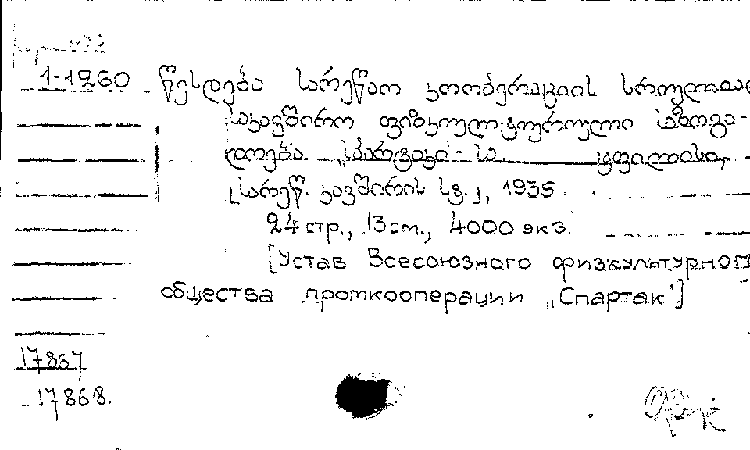 1-1960 წესდება სარეწაო კოოპერაციის სრულიად
საკავშირო ფიზკულტურული საზოგა-
დოება „სპარტაკი"-სა. ტფილისი,
[სარეწ. კავშირის სტ.], 1935
24 стр., 13 см., 4000 экз.
[Устав Всесоюзного физкультурного
общества промкооперации „Спартак"]
17867
17868.